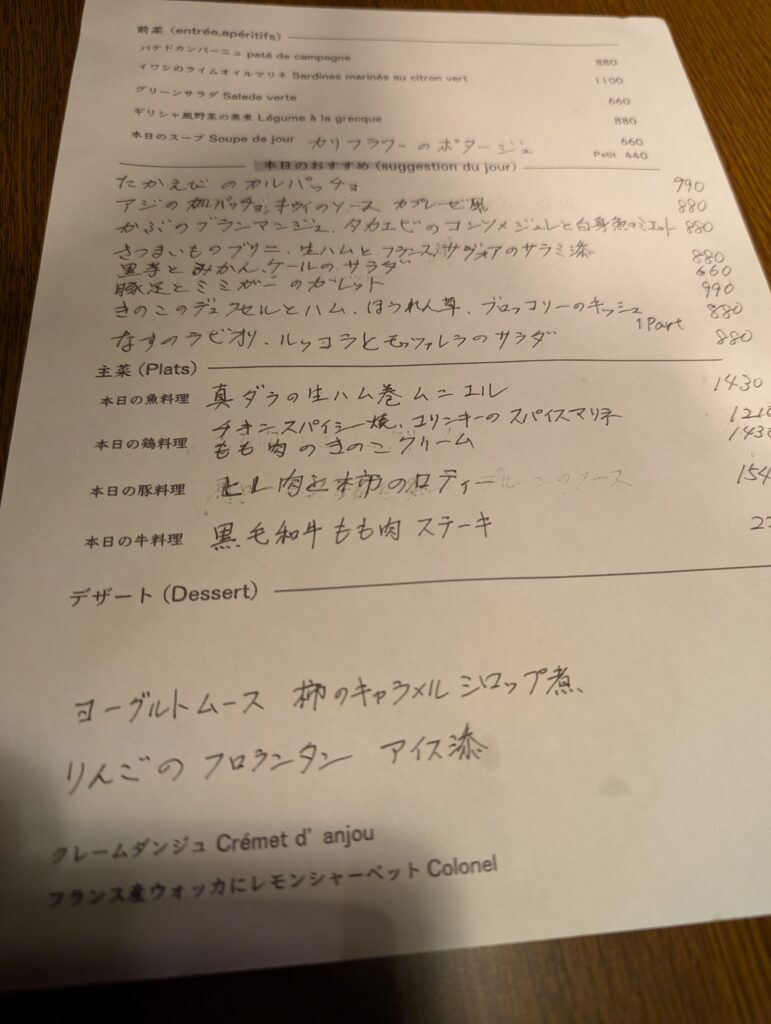 前菜 (entrée,apéritifs)
パテドカンパーニュ paté de campagne 880
イワシのライムオイルマリネ Sardines marinés au citron vert 1100
グリーンサラダ Salade verte 660
ギリシャ風野菜の蒸煮 Légume à la grecque 880
本日のスープ Soupe de jour カリフラワーのポタージュ 660
Petit 440
本日のおすすめ (suggestion du jour)
たかえびのカルパッチョ 990
アジのカルパッチョ、キウイのソース カプレーゼ風 880
かぶのブランマンジェ、タカエビのコンソメジュレと白身魚のミエット 880
さつまいものブリニ、生ハムとフランス、サヴォアのサラミ添 880
里芋とみかん、ケールのサラダ 660
豚足とミミガーのガレット 990
きのこのデュクセルとハム、ほうれん草、ブロッコリーのキッシュ 1Part 880
なすのラビオリ、ルッコラとモッツァレラのサラダ 880
主菜 (Plats)
本日の魚料理 真ダラの生ハム巻ムニエル 1430
チキンスパイシー焼、コリンキーのスパイスマリネ 1210
本日の鶏料理 もも肉のきのこクリーム 1430
本日の豚料理 ヒレ肉と柿のロティ 154
本日の牛料理 黒毛和牛もも肉ステーキ 2
デザート (Dessert)
ヨーグルトムース 柿のキャラメルシロップ煮、
りんごのフロランタン アイス添
クレームダンジュ Crémet d' anjou
フランス産ウォッカにレモンシャーベット Colonel